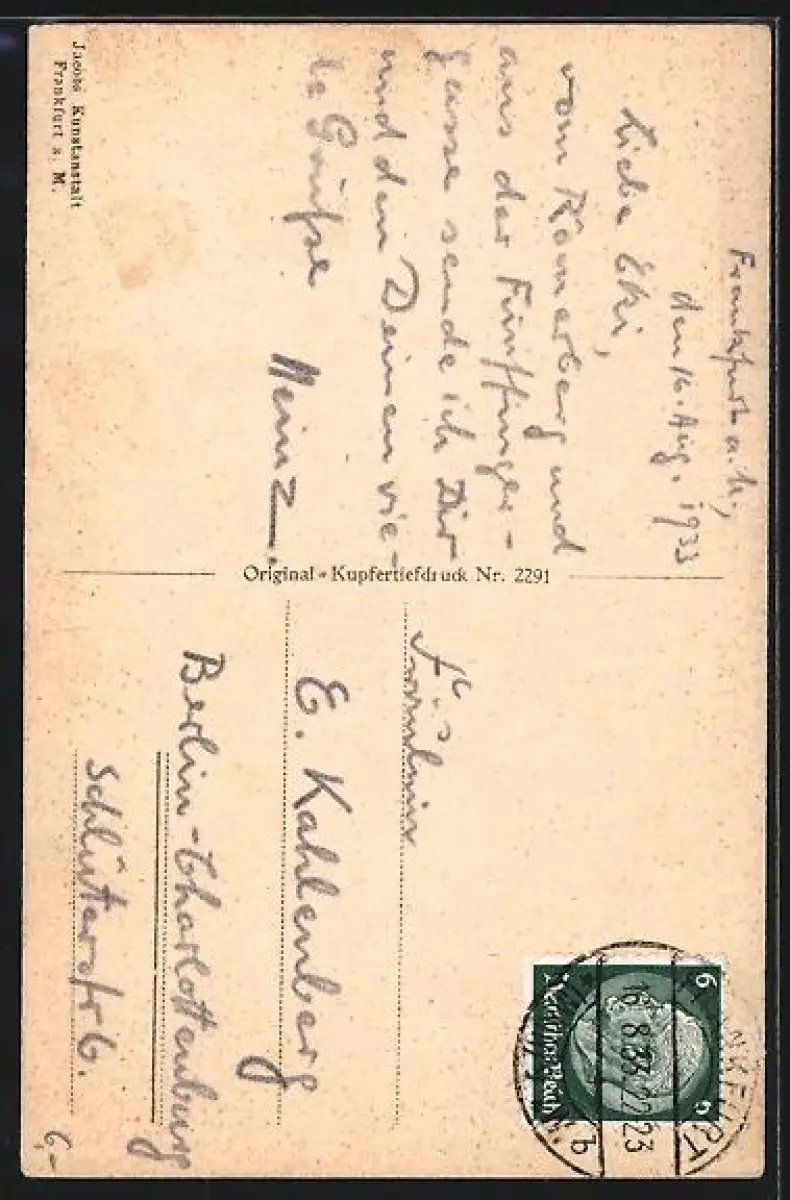 Frankfurt a. M.,
den 16. Aug. 1933
Liebe Eki,
vom Römerberg und
aus der Fünffinger-
gasse sende ich Dir
und den Deinen vie-
le Grüße
Heinz.
Jacobs Kunstanstalt
Frankfurt a. M.
Original-Kupfertiefdruck Nr. 2291
Fräulein
E. Kahlenberg
Berlin-Charlottenburg
Schlüterstr 6.
6,-
6 6
Deutsches Reich
FRANKFURT
16.8.33.22-23
b